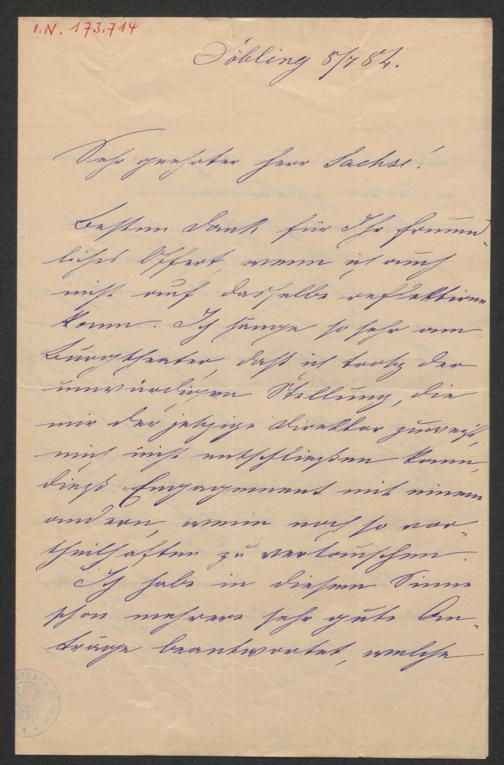 I.N. 173.714
Döbling 5/7 82.
Sehr geehrter Herr Sachse!
Besten Dank für Ihr freund-
liches Offert, wenn ich auch
nicht auf dasselbe reflektiren
kann. Ich hänge so sehr am
Burgtheater, daß ich trotz der
unwürdigen Stellung, die
mir der jetzige Direktor zuweist,
mich nicht entschließen kann,
dieses Engagement mit einem
andern, wenn noch so vor-
theilhaften zu vertauschen.
Ich habe in diesem Sinne
schon mehrere sehr gute An-
träge beantwortet, welche